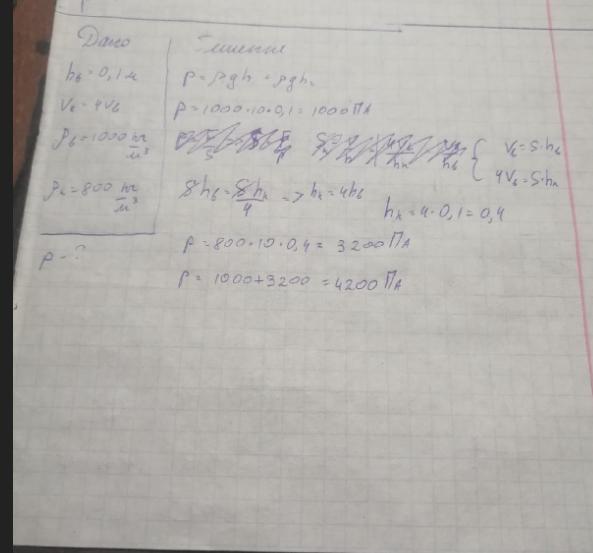 Дано
hв = 0,1 м
Vк = 4Vв
ρв = 1000 кг/м³
ρк = 800 кг/м³
p - ?
Решение
p = ρgh + ρgh
p = 1000·10·0,1 = 1000 Па
Vв = S·hв
4Vв = S·hк
Shв = Shк/4 => hк = 4hв
hк = 4·0,1 = 0,4
p = 800·10·0,4 = 3200 Па
p = 1000+3200 = 4200 Па